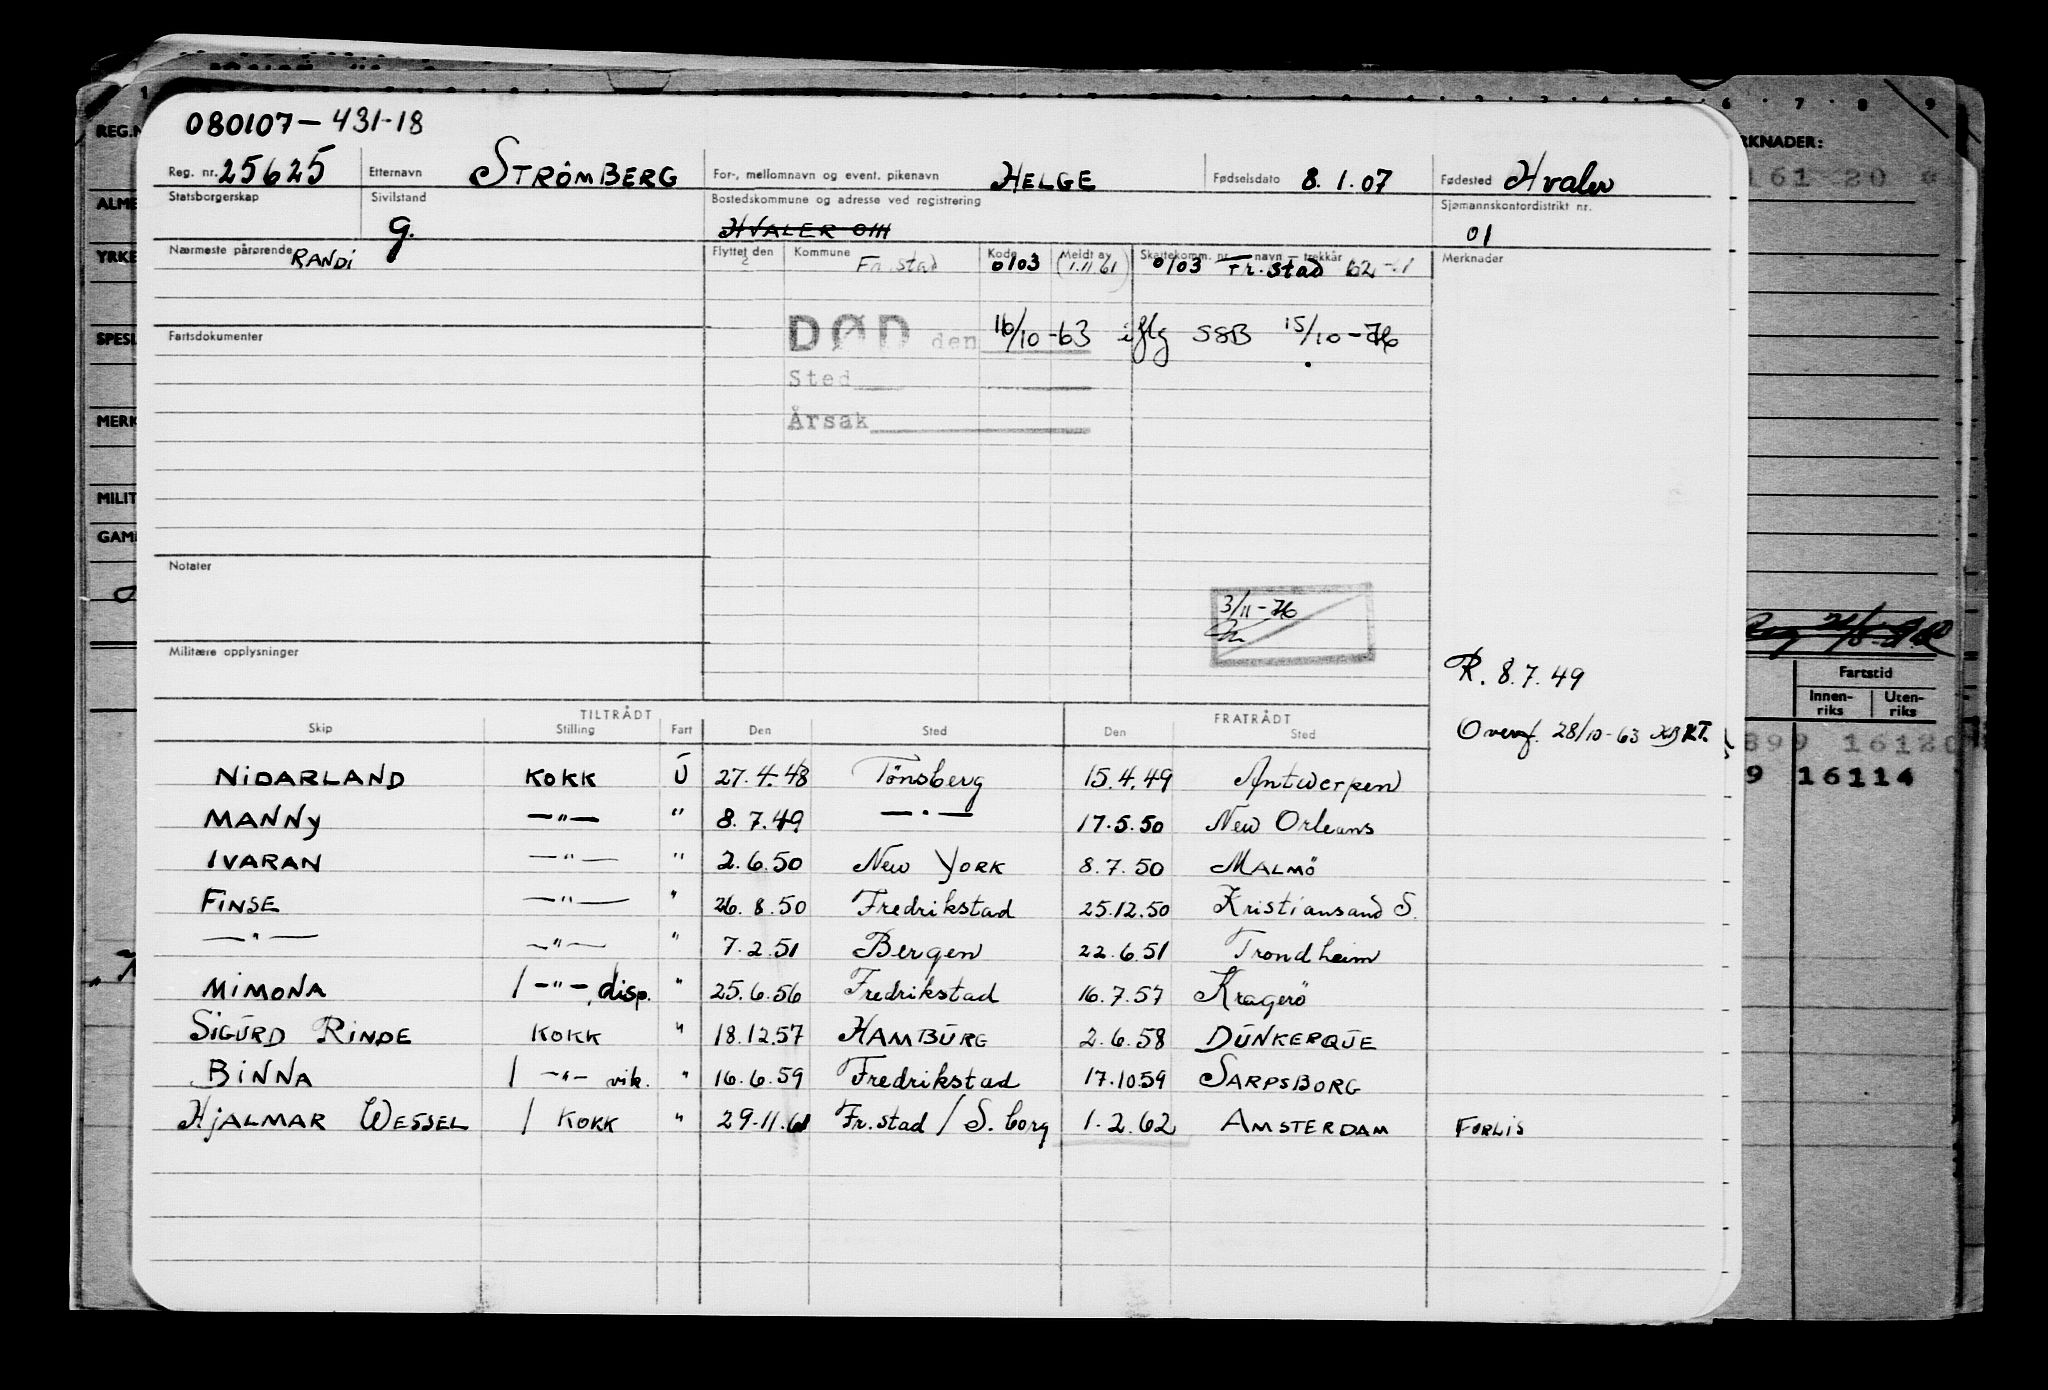 080107-431-18
Reg. nr. 25625 Etternavn STRØMBERG For-, mellomnavn og event. pikenavn HELGE Fødselsdato 8.1.07 Fødested Hvaler
Statsborgerskap Sivilstand G. Bostedskommune og adresse ved registrering HVALER 0111 Sjømannskontordistrikt nr. 01
Nærmeste pårørende RANDI Flyttet den Kommune Fr.stad Kode 0103 Meldt av (1.11.61) Skattekomm. nr. navn trekkår 0103 Fr.stad Merknader
Fartsdokumenter DØD den 16/10-63 iflg SSB 15/10-76
Sted
Årsak
Notater
3/11-76
Militære opplysninger
R. 8.7.49
Overf. 28/10-63
TILTRÅDT FRATRÅDT
Skip Stilling Fart Den Sted Den Sted
NIDARLAND KOKK U 27.4.48 Tönsberg 15.4.49 Antwerpen
MANNY —"— " 8.7.49 —"— 17.5.50 New Orleans
IVARAN —"— " 2.6.50 New YORK 8.7.50 MALMÖ
FINSE —"— " 26.8.50 Fredrikstad 25.12.50 Kristiansand S.
—"— —"— " 7.2.51 Bergen 22.6.51 Trondheim
MIMONA / —"—, disp. " 25.6.56 Fredrikstad 16.7.57 Kragerö
SIGURD RINDE KOKK " 18.12.57 HAMBURG 2.6.58 DUNKERQUE
BINNA / —"— vik. " 16.6.59 Fredrikstad 17.10.59 SARPSBORG
HJALMAR WESSEL / KOKK " 29.11.61 Fr.stad / S.borg 1.2.62 AMSTERDAM FORLIS
REG.N
ALME
YRKE
SPESI
MERK
MILIT
GAM
6 7 8 9
RKNADER:
161 20
Fartstid
Innen-riks Uten-riks
899 16120
9 16114